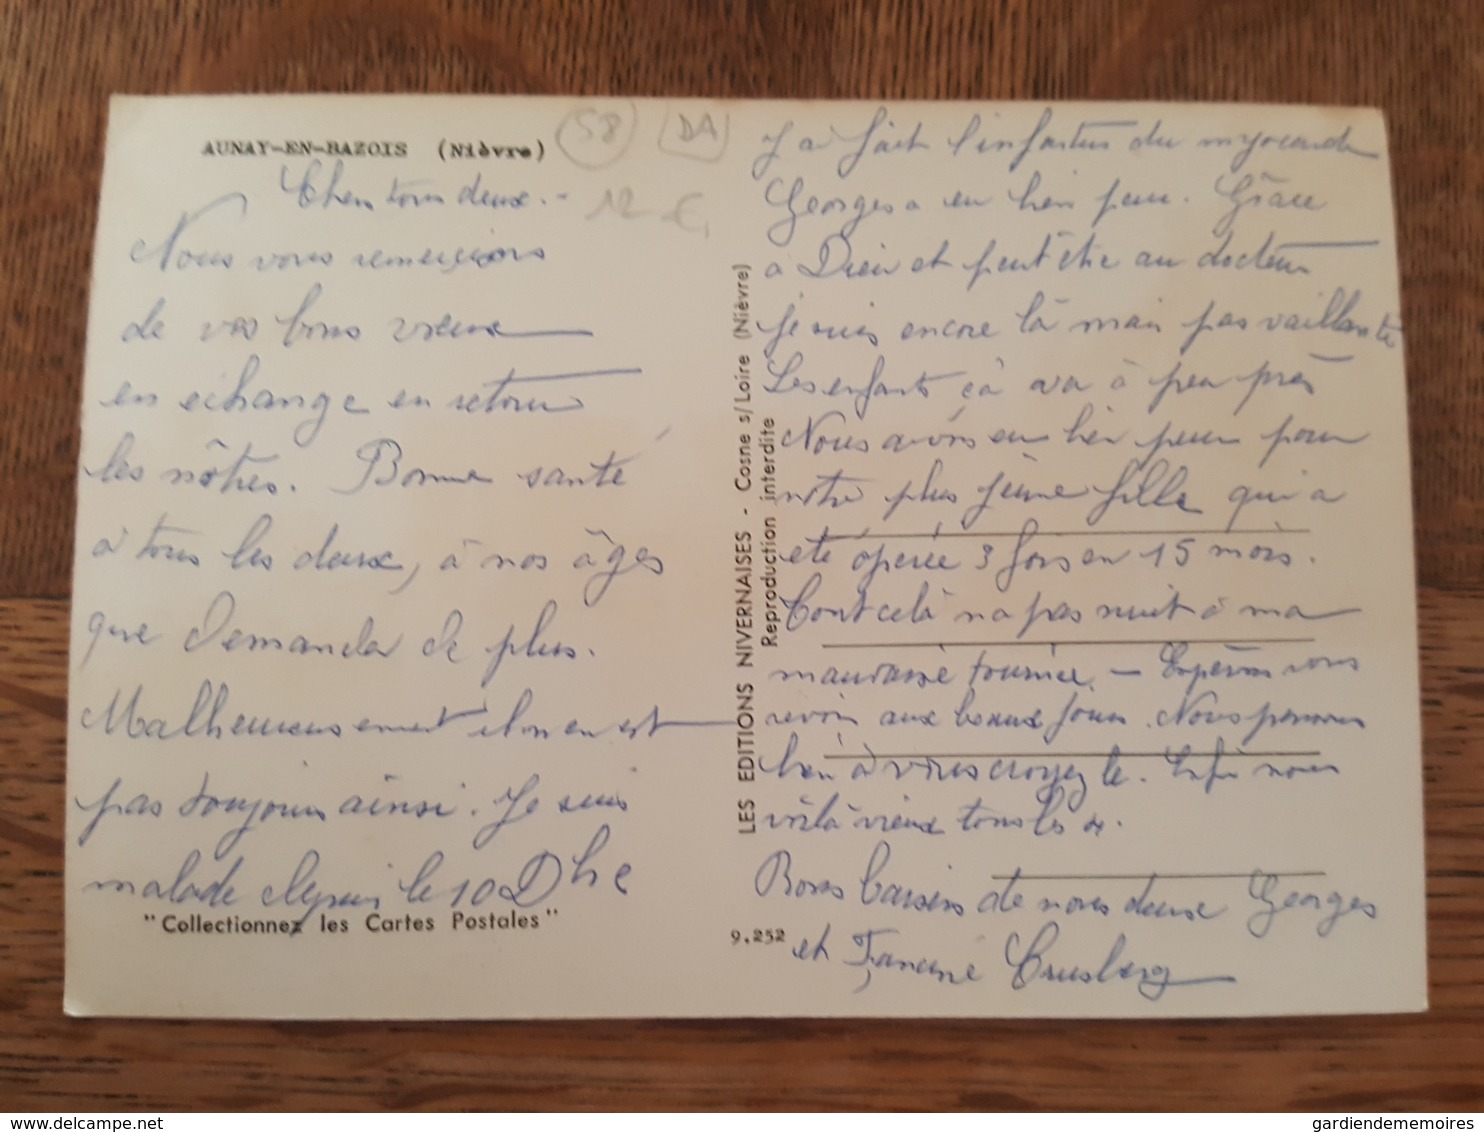 AUNAY-EN-BAZOIS (Nièvre)
58
DA
12 €
Chers tous deux.-
Nous vous remercions
de vos bons vœux
en échange en retour
les nôtres. Bonne santé
à tous les deux, à nos âges
que demander de plus.
Malheureusement il n'en est
pas toujours ainsi. Je suis
malade depuis le 10 Dbre
"Collectionnez les Cartes Postales"
LES EDITIONS NIVERNAISES - Cosne s/Loire (Nièvre)
Reproduction interdite
9.252
J'ai fait l'infartus du myocarde
Georges a eu bien peur. Grâce
à Dieu et peut être au docteur
je suis encore là mais pas vaillante
Les enfants çà va à peu près
Nous avons eu bien peur pour
notre plus jeune fille qui a
été opérée 3 fois en 15 mois.
Tout celà n'a pas nuit à ma
mauvaise tournure. - Espérons vous
revoir aux beaux jours. Nous pensons
bien à vous croyez le. Enfin nous
voilà vieux tous les 4.
Bons baisers de nous deux Georges
et Francine
gardiendememoires
delcampe.net